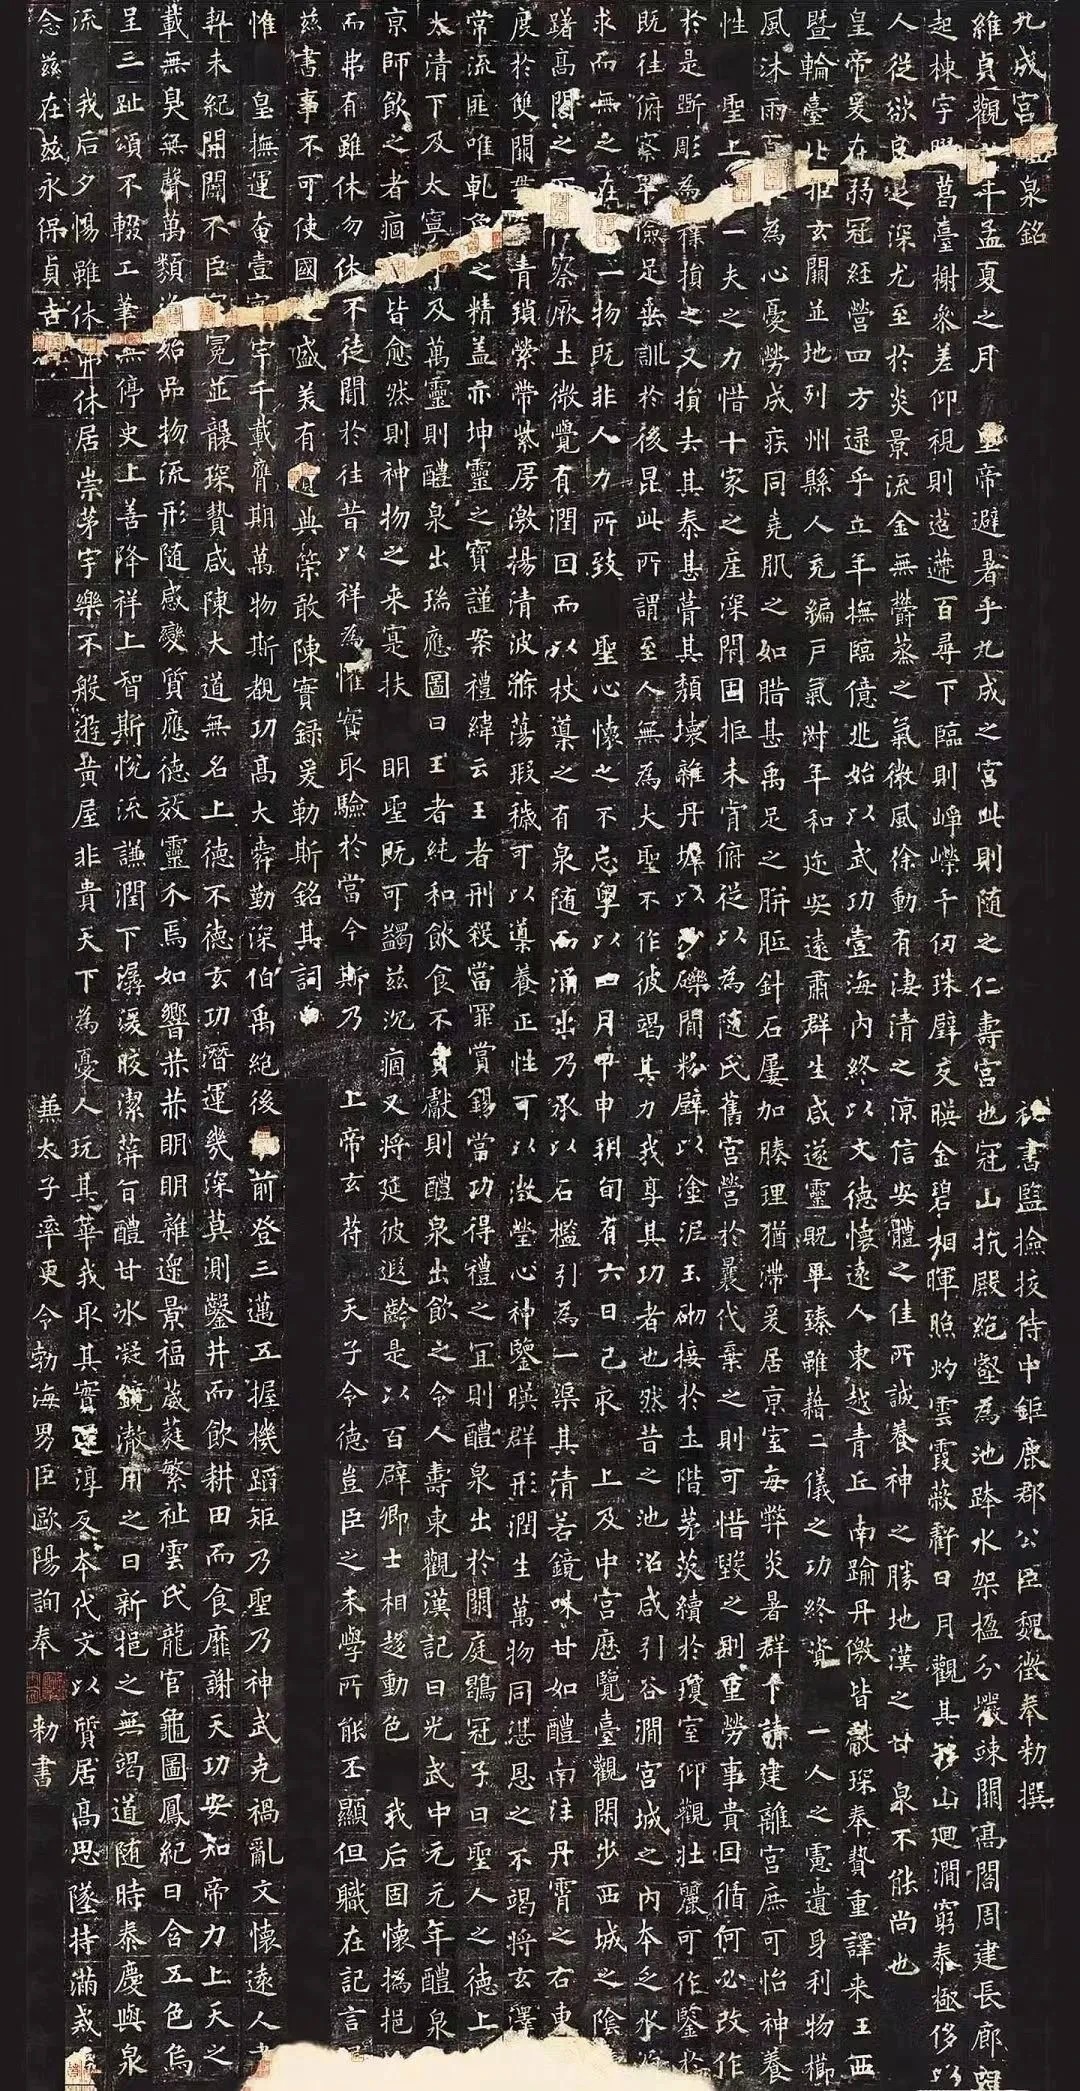 九成宮泉銘 秘書監撿挍侍中鉅鹿郡公臣魏徵奉勅撰
維貞觀年孟夏之月 皇帝避暑乎九成之宮此則隨之仁壽宮也冠山抗殿絕壑為池跨水架楹分巖竦闕高閣周建長廊
起棟宇膠葛臺榭參差仰視則迢遰百尋下臨則崢嶸千仞珠璧交暎金碧相暉照灼雲霞蔽虧日月觀其移山迴澗窮泰極侈以
人從欲良足深尤至於炎景流金無欝蒸之氣微風徐動有淒清之涼信安體之佳所誠養神之勝地漢之甘泉不能尚也
皇帝爰在弱冠經營四方逮乎立年撫臨億兆始以武功壹海內終以文德懷遠人東越青丘南踰丹儌皆獻琛奉贄重譯來王西
暨輪臺北拒玄闕並地列州縣人充編戶氣淑年和迩安遠肅群生咸遂靈貺畢臻雖藉二儀之功終資 一人之慮遺身利物櫛
風沐雨百為心憂勞成疾同堯肌之如腊甚禹足之胼胝針石屢加腠理猶滯爰居京室每弊炎暑群下請建離宮庶可怡神養
性 聖上一夫之力惜十家之產深閉固拒未肯俯從以為隨氏舊宮營於曩代棄之則可惜毀之則重勞事貴因循何必改作
於是斲彫為樸損之又損去其泰甚葺其頹壞雜丹墀以沙礫間粉壁以塗泥玉砌接於土階茅茨續於瓊室仰觀壯麗可作鑒於
既往俯察卑儉足垂訓於後昆此所謂至人無為大聖不作彼竭其力我享其功者也然昔之池沼咸引谷澗宮城之內本乏水源
求而無之在一物既非人力所致 聖心懷之不忘粵以四月甲申朔旬有六日己亥 上及中宮歷覽臺觀閑步西城之陰
躊高閣之下察厥土微覺有潤因而以杖導之有泉隨而涌出乃承以石檻引為一渠其清若鏡味甘如醴南注丹霄之右東
度於雙闕青瑣縈帶紫房激揚清波滌蕩瑕穢可以導養正性可以澂瑩心神鑒暎群形潤生萬物同湛恩之不竭將玄澤
常流匪唯乹象之精蓋亦坤靈之寶謹案禮緯云王者刑殺當罪賞錫當功得禮之宜則醴泉出於闕庭鶡冠子曰聖人之德上
太清下及太寧中及萬靈則醴泉出瑞應圖曰王者純和飲食不貢獻則醴泉出飲之令人壽東觀漢記曰光武中元元年醴泉
京師飲之者痼皆愈然則神物之來寔扶 明聖既可蠲茲沉痼又將延彼遐齡是以百辟卿士相趨動色 我后固懷撝挹
而弗有雖休勿休不徒聞於往昔以祥為懼實取驗於當今斯乃 上帝玄符 天子令德豈臣之末學所能丕顯但職在記言
茲書事不可使國之盛美有遺典策敢陳實錄爰勒斯銘其詞曰
惟 皇撫運奄壹寰宇千載膺期萬物斯覩功高大舜勤深伯禹絕後前登三邁五握機蹈矩乃聖乃神武克禍亂文懷遠人書
契未紀開闢不臣冠冕並襲琛贄咸陳大道無名上德不德玄功潛運幾深莫測鑿井而飲耕田而食靡謝天功安知帝力上天之
載無臭無聲萬類資始品物流形隨感變質應德效靈介焉如響赫赫明明雜遝景福葳蕤繁祉雲氏龍官龜圖鳳紀日含五色烏
呈三趾頌不輟工筆無停史上善降祥上智斯悅流謙潤下潺湲皎潔蓱旨醴甘冰凝鏡澈用之日新挹之無竭道隨時泰慶與泉
流 我后夕惕雖休弗休居崇茅宇樂不般遊黃屋非貴天下為憂人玩其華我取其實還淳反本代文以質居高思墜持滿戒溢
念茲在茲永保貞吉 兼太子率更令勃海男臣歐陽詢奉 勅書